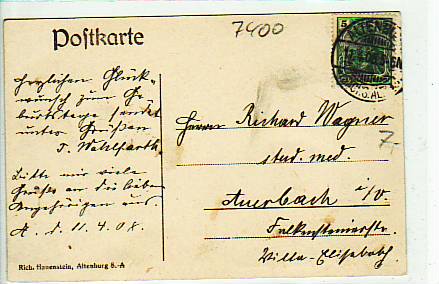 7400
Postkarte
5
ALTENBURG
Herzlichen Glück-
wunsch zum Ge-
burtstage sendet
unter Grüßen
F. Wohlfarth
Bitte mir viele
Grüße an die lieben
Angehörigen aus
A. d. 11. 4. 08.
Herrn Richard Wagner
stud. med.
7.-
Auerbach i/V.
Falkensteinerstr.
Villa Elisabeth.
Rich. Hauenstein, Altenburg S.-A